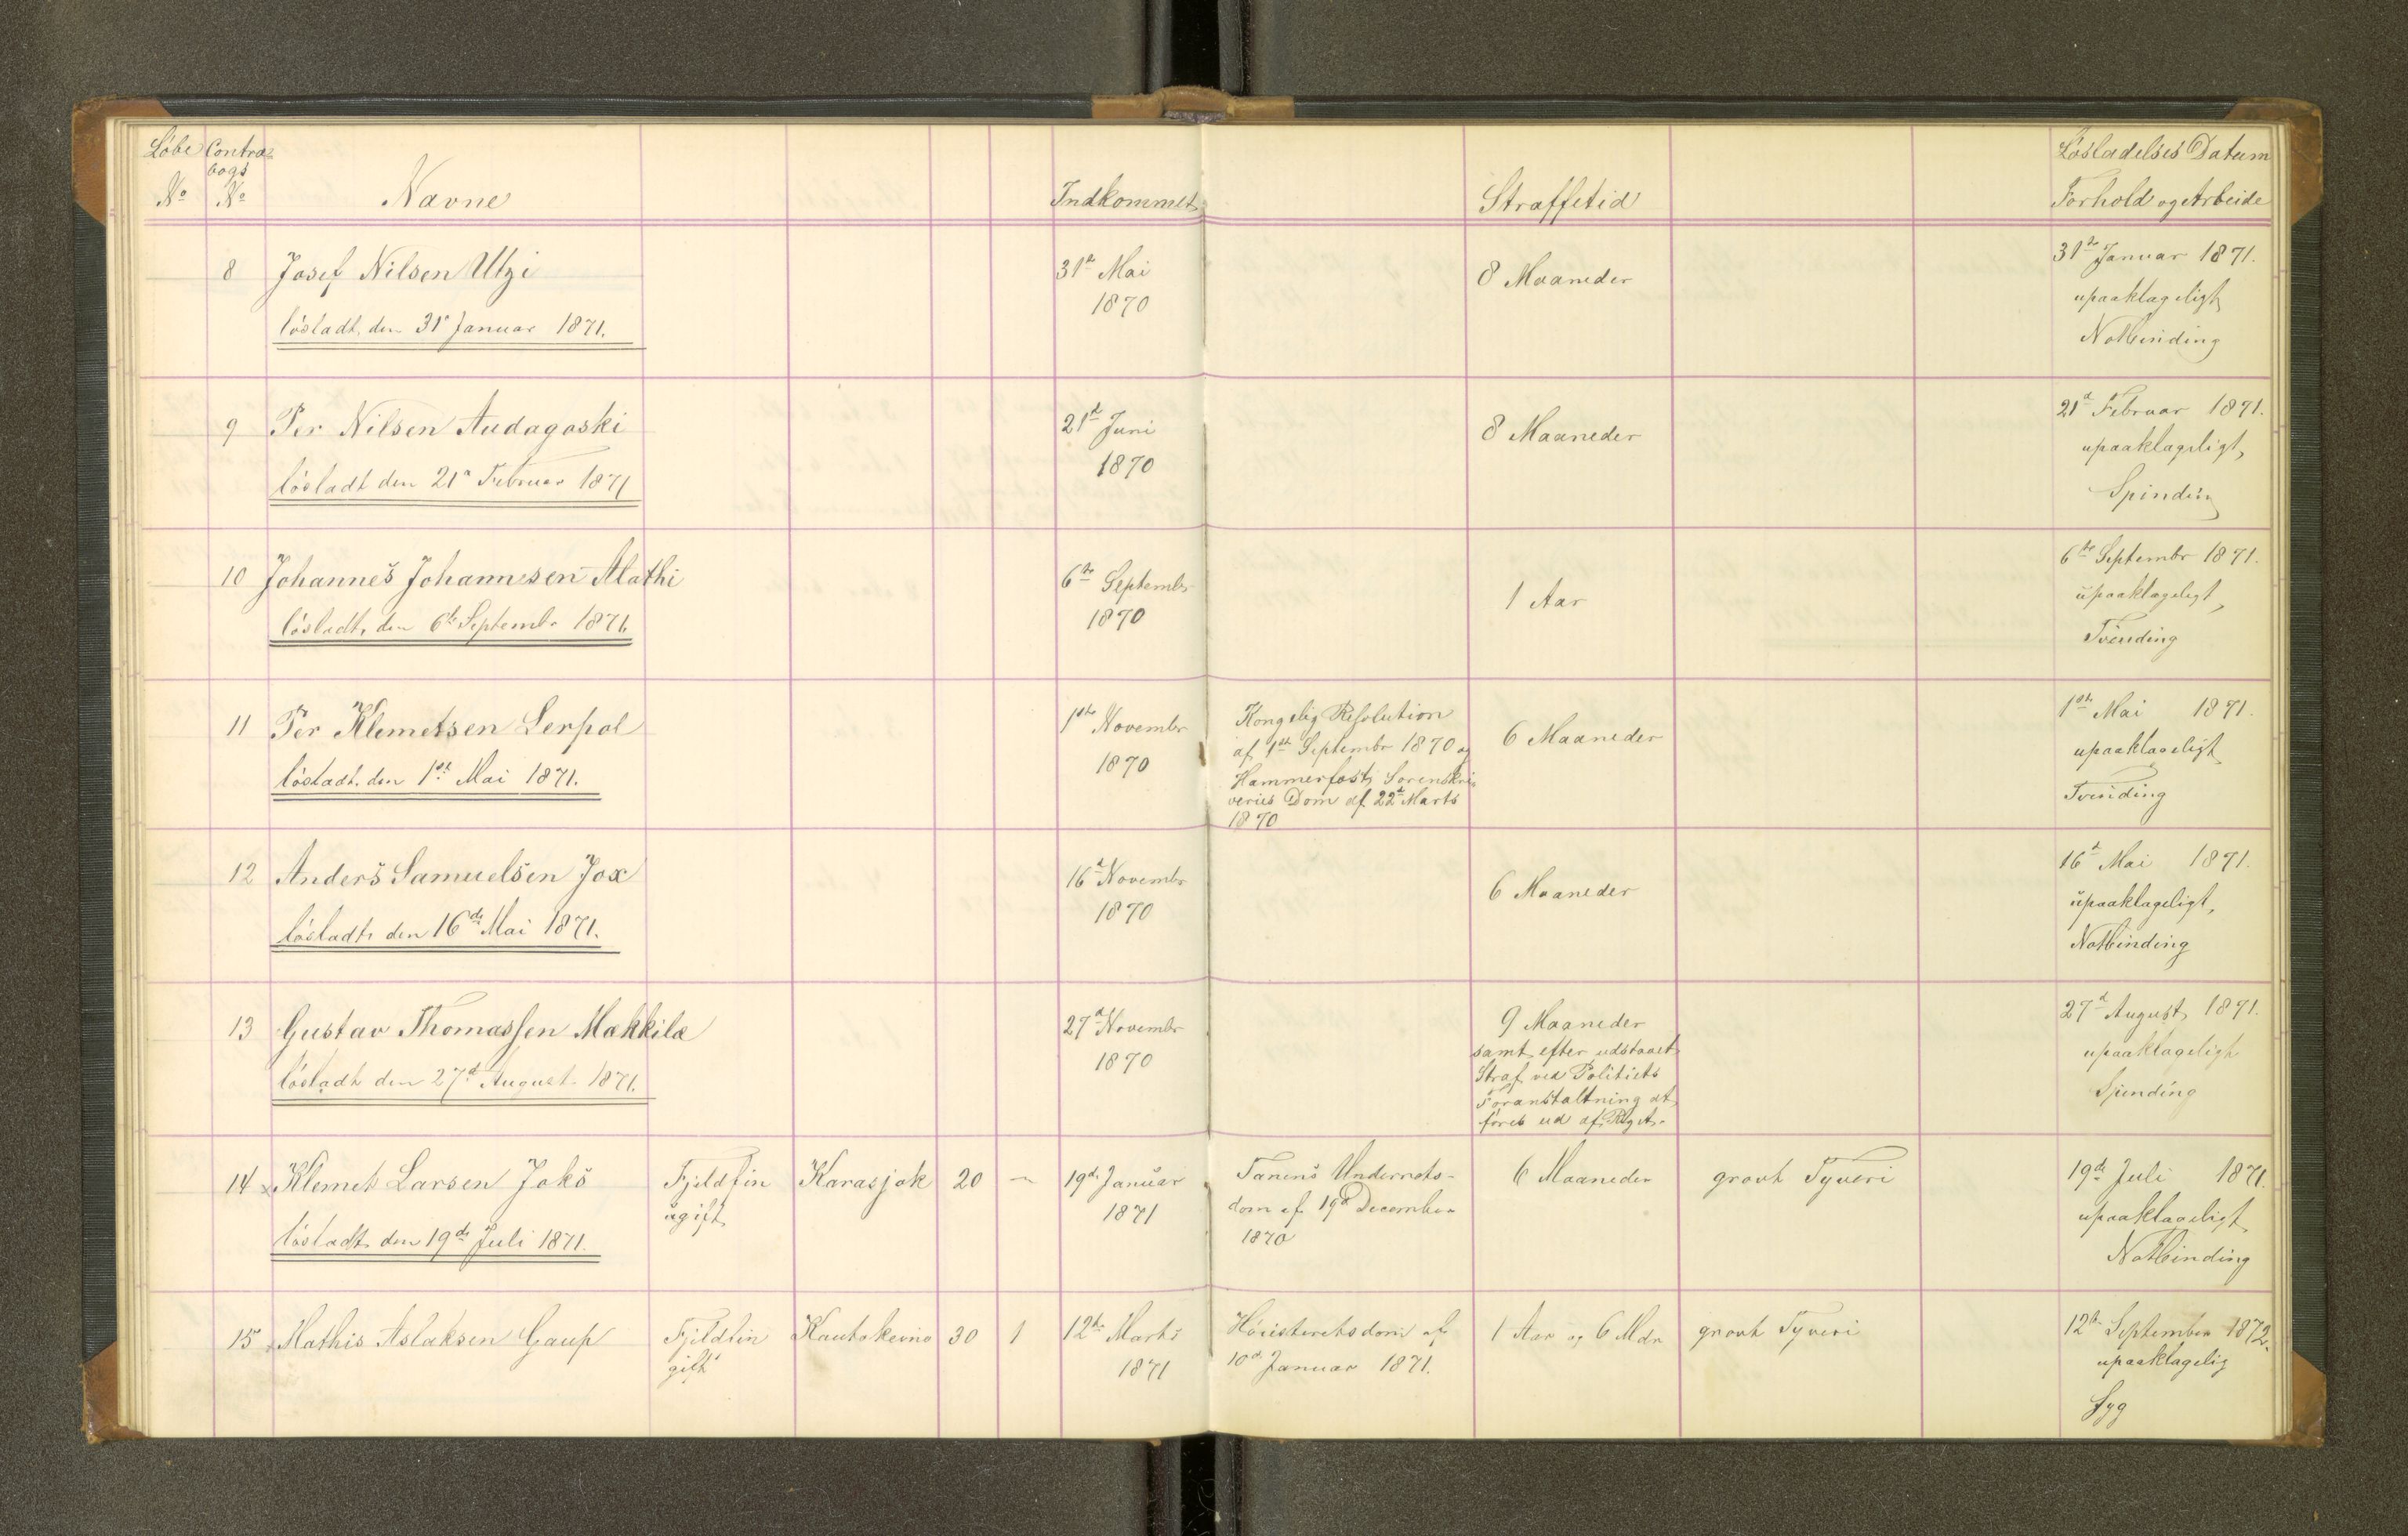 Løbe Contra
bogs
No No Navne Indkommet Straffetid Løsladelses Datum
Forhold og Arbeide
8 Josef Nilsen Utzi 31te Mai 8 Maaneder 31te Januar 1871.
1870 upaaklageligt
løsladt. den 31te Januar 1871. Notbinding
9 Per Nilsen Audagaski 21de Juni 8 Maaneder 21d Februar 1871.
1870 upaaklageligt,
løsladt den 21de Februar 1871 Spinding
10 Johannes Johannesen Mathi 6te Septembr 1 Aar 6te Septembr 1871.
1870 upaaklageligt,
løsladt, den 6te Septembr 1871. Tvinding
11 Per Klemetsen Lerpol 1ste Novembr Kongelig Resolution 6 Maaneder 1ste Mai 1871.
1870 af 1ste Septembr 1870 og upaaklageligt
løsladt. den 1ste Mai 1871. Hammerfests Sorenskri- Tvinding
veries Dom af 22de Marts
1870
12 Anders Samuelsen Jox 16d Novembr 6 Maaneder 16d Mai 1871.
1870 upaaklageligt,
løsladt den 16de Mai 1871. Notbinding
13 Gustav Thomassen Makkila 27d Novembr 9 Maaneder 27d August 1871.
1870 samt efter udstaaet upaaklageligt
løsladt den 27d August 1871. Straf ved Politiets Spinding
Foranstaltning at
føres ud af Riget.
14 Klemet Larsen Joks Fjeldfin Karasjok 20 ~ 19de Januar Tanens Underrets- 6 Maaneder grovt Tyveri 19de Juli 1871.
ugift 1871 dom af 19d December upaaklageligt
løsladt den 19de Juli 1871. 1870 Notbinding
15 Mathis Aslaksen Gaup Fjeldfin Kautokeino 30 1 12te Marts Høiesteretsdom af 1 Aar og 6 Mdr grovt Tyveri 12te September 1872.
gift 1871 10d Januar 1871. upaaklagelig
Syg